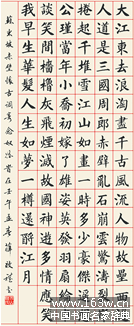 大江東去浪淘盡千古風流人物故壘西
人道是三國周郎赤壁
捲起千堆雪江山如畫一時多少豪傑遙
公瑾當年小喬初嫁了雄姿英發羽扇綸
談笑間檣櫓灰飛煙滅故國神遊多情應笑
我早生華髮人生如夢一樽還酹江月
蘇東坡赤壁懷古詞念奴嬌歲在壬午孟春
中国书画家网
www.163w.cn